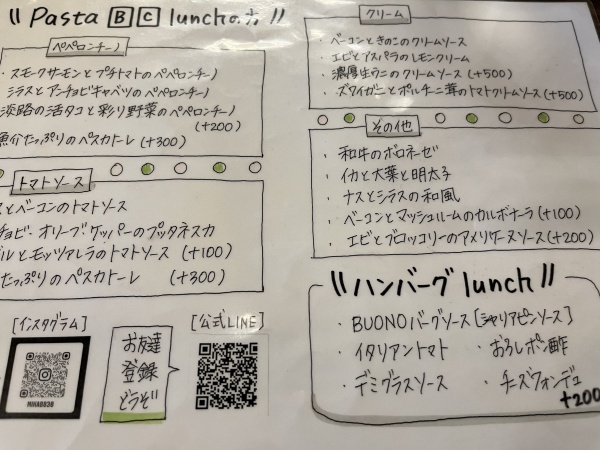 Pasta B C lunchの方
ペペロンチーノ
・スモークサーモンとプチトマトのペペロンチーノ
シラスとアンチョビキャベツのペペロンチーノ
淡路の活タコと彩り野菜のペペロンチーノ
(+200)
魚介たっぷりのペスカトーレ (+300)
トマトソース
とベーコンのトマトソース
チョビーオリーブケッパーのプッタネスカ
ルとモッツァレラのトマトソース (+100)
たっぷりのペスカトーレ (+300)
[インスタグラム]
MIHAB838
お友達
登録
どうぞ
[公式LINE]
クリーム
・ベーコンときのこのクリームソース
・エビとアスパラのレモンクリーム
・濃厚生ウニのクリームソース (+500)
・ズワイガニとポルチーニ茸のトマトクリームソース (+500)
その他
・和牛のボロネーゼ
・イカと大葉と明太子
・ナスとシラスの和風
・ベーコンとマッシュルームのカルボナーラ (+100)
・エビとブロッコリーのアメリケーヌソース (+200)
ハンバーグ lunch
・BUONOバーグソース [シャリアピンソース]
・イタリアントマト ・おろしポン酢
・デミグラスソース ・チーズフォンデュ
+200